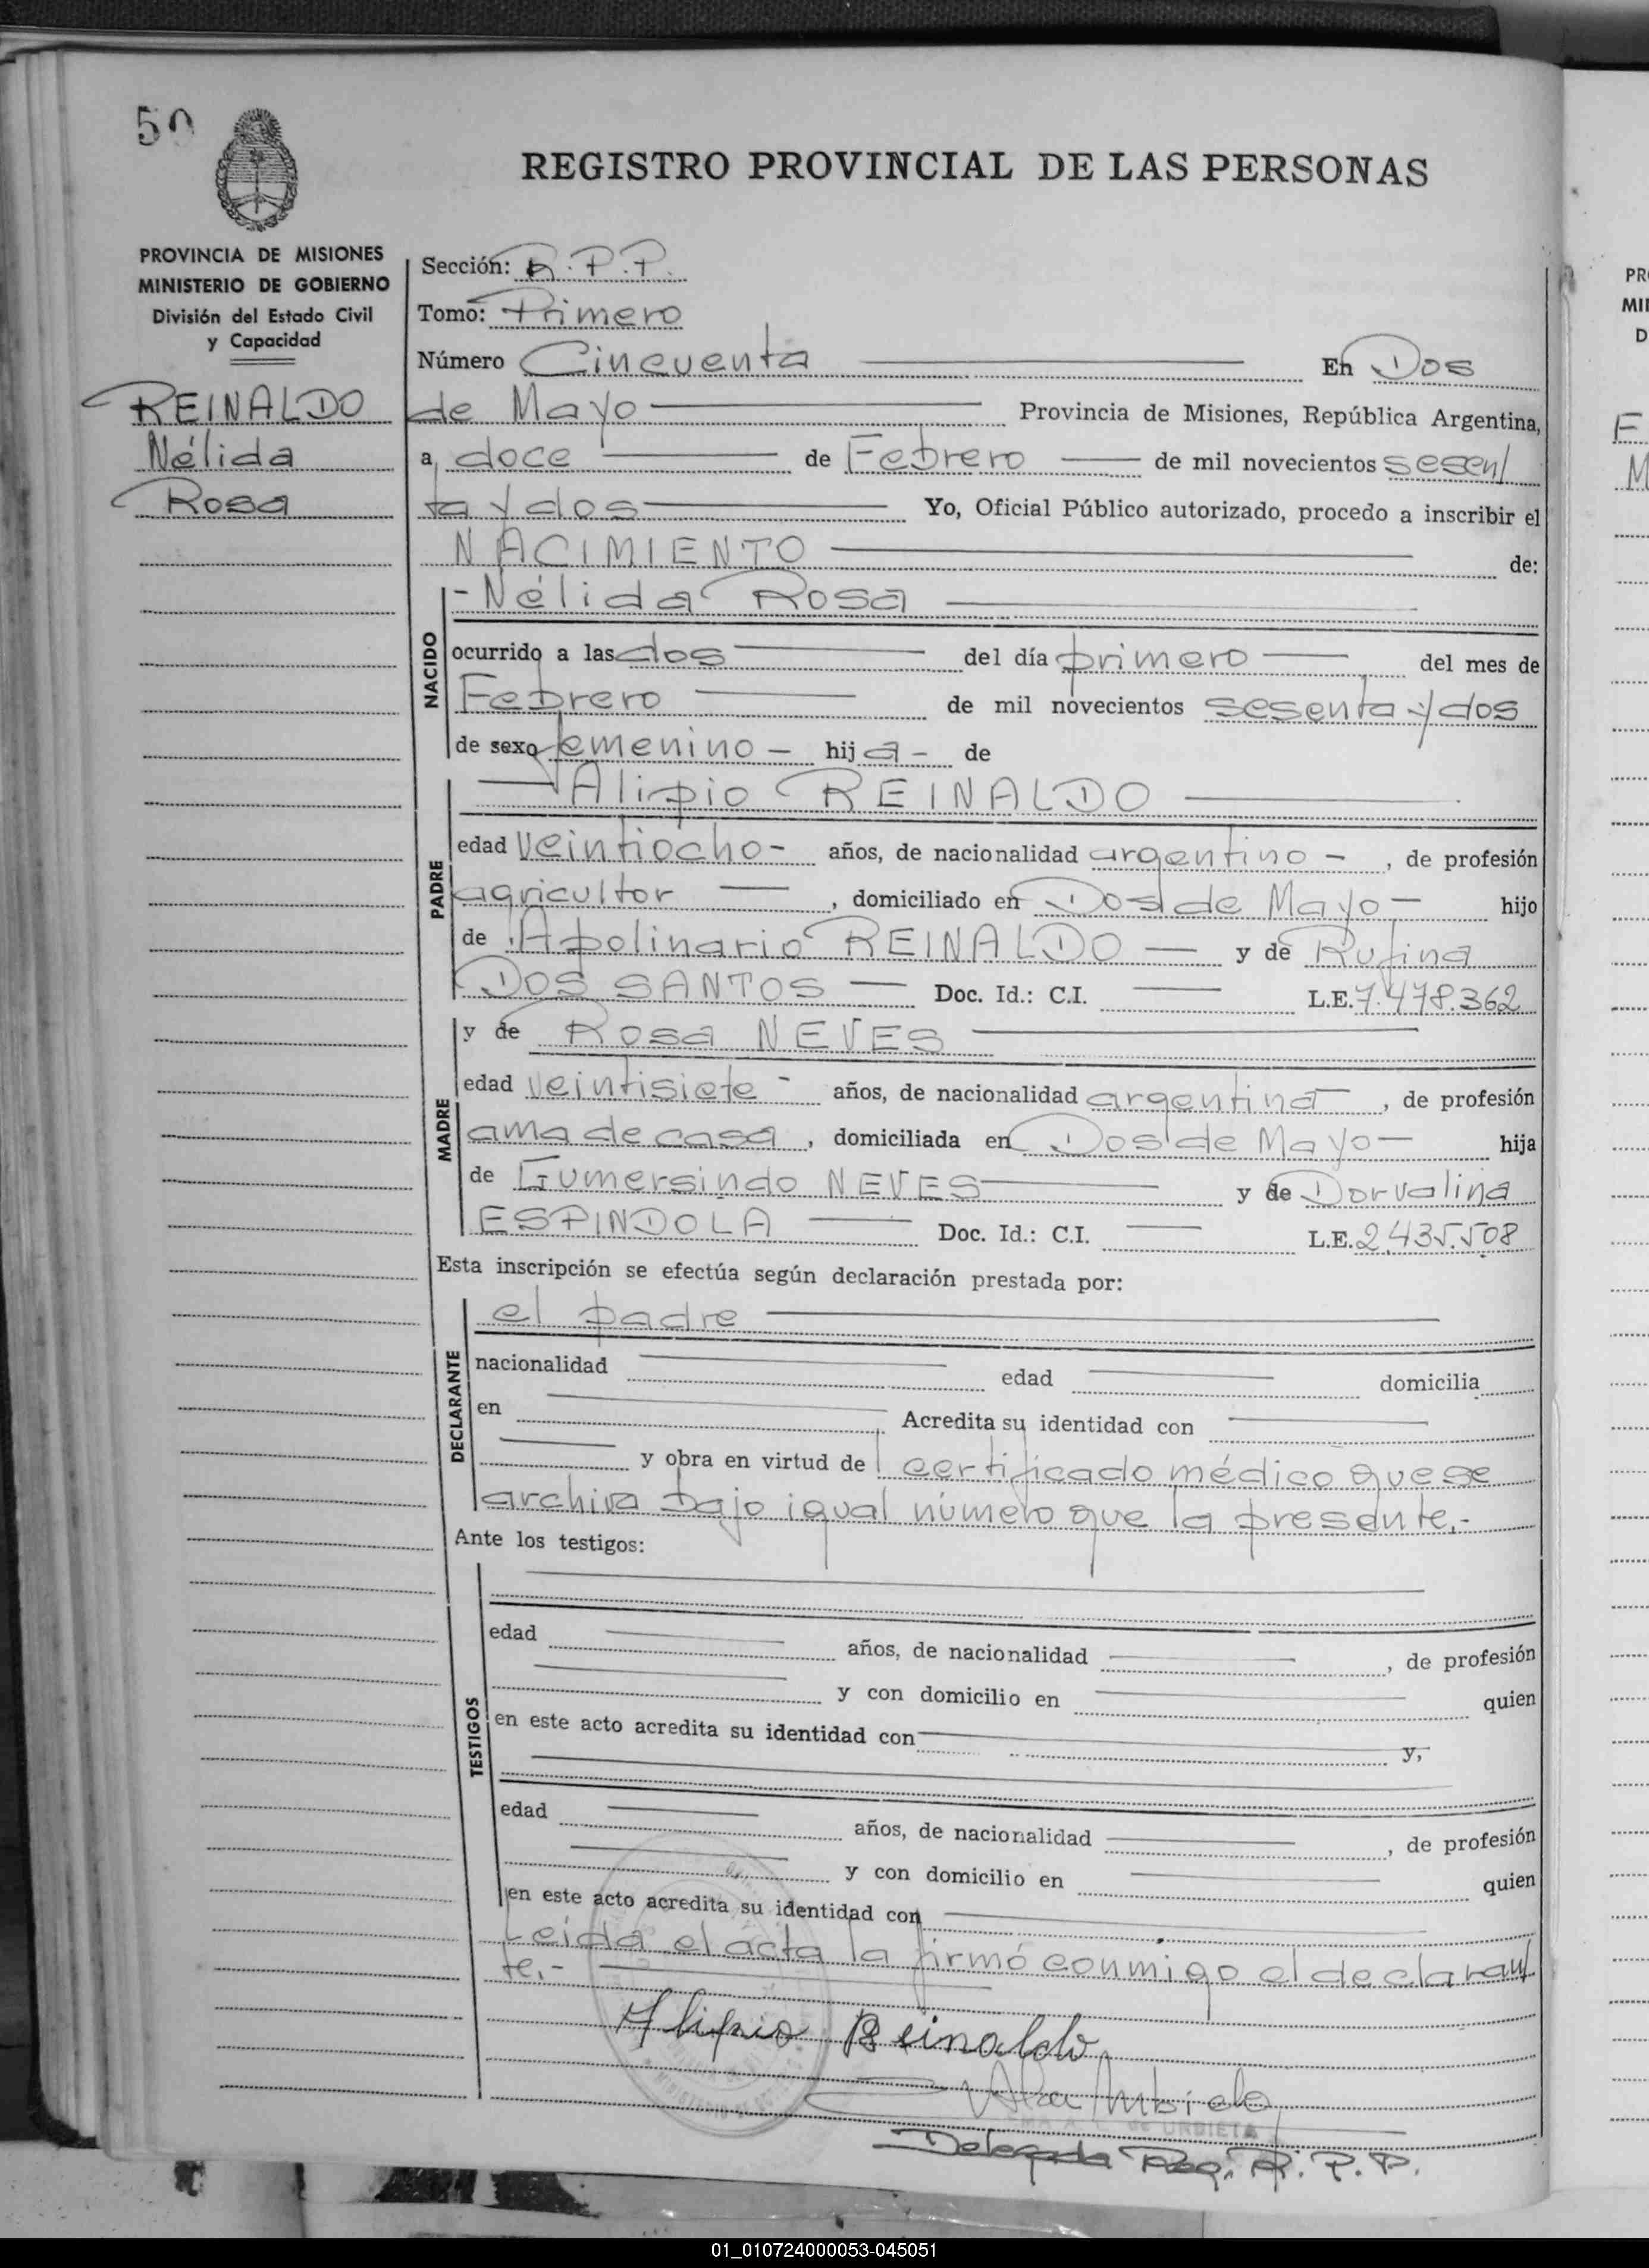 50
REGISTRO PROVINCIAL DE LAS PERSONAS
PROVINCIA DE MISIONES
MINISTERIO DE GOBIERNO
División del Estado Civil
y Capacidad
REINALDO
Nélida
Rosa
Sección: R.P.P.
Tomo: Primero
Número Cincuenta En Dos
de Mayo Provincia de Misiones, República Argentina,
a doce de Febrero de mil novecientos sesen/
ta y dos Yo, Oficial Público autorizado, procedo a inscribir el
NACIMIENTO de:
NACIDO
- Nélida Rosa
ocurrido a las dos del día primero del mes de
Febrero de mil novecientos sesenta y dos
de sexo femenino - hija - de
PADRE
Alipio REINALDO
edad veintiocho - años, de nacionalidad argentino - , de profesión
agricultor , domiciliado en Dos de Mayo - hijo
de Apolinario REINALDO y de Rufina
DOS SANTOS Doc. Id.: C.I. L.E. 7.478.362
MADRE
y de Rosa NEVES
edad veintisiete - años, de nacionalidad argentina , de profesión
ama de casa , domiciliada en Dos de Mayo - hija
de Gumersindo NEVES y de Dorvalina
ESPINDOLA Doc. Id.: C.I. L.E. 2.435.508
Esta inscripción se efectúa según declaración prestada por:
DECLARANTE
el padre
nacionalidad edad domicilia
en Acredita su identidad con
y obra en virtud de certificado médico que se
archiva bajo igual número que la presente.-
Ante los testigos:
TESTIGOS
edad años, de nacionalidad , de profesión
y con domicilio en quien
en este acto acredita su identidad con y,
edad años, de nacionalidad , de profesión
y con domicilio en quien
en este acto acredita su identidad con
Leída el acta la firmó conmigo el declaran/
te.-
Alipio Reinaldo
de URBIETA
Delegada Reg. R.P.P.
PR
MI
D
F
M
01_010724000053-045051